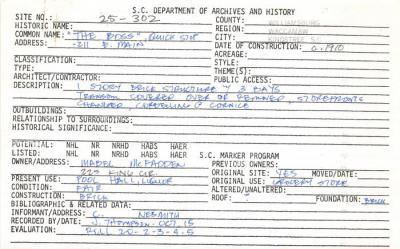 S.C. DEPARTMENT OF ARCHIVES AND HISTORY
SITE NO.: 25-302 COUNTY: WILLIAMSBURG
HISTORIC NAME: REGION: WACCAMAW
COMMON NAME: "THE BOSS", QUICK STOP CITY: KINGSTREE S.C.
ADDRESS: 211 E. MAIN DATE OF CONSTRUCTION: C. 1910
ACREAGE:
CLASSIFICATION: STYLE:
TYPE: THEME(S):
ARCHITECT/CONTRACTOR: PUBLIC ACCESS:
DESCRIPTION: 1 STORY BRICK STRUCTURE, 3 BAYS
TRANSOM COVERED OVER OR STOREFRONTS
CHANGED, CORBELLING @ CORNICE
OUTBUILDINGS:
RELATIONSHIP TO SURROUNDINGS:
HISTORICAL SIGNIFICANCE:
POTENTIAL: NHL NR NRHD HABS HAER
LISTED: NHL NR NRHD HABS HAER S.C. MARKER PROGRAM
OWNER/ADDRESS: MABEL McFADDEN PREVIOUS OWNERS:
225 KING CIR. ORIGINAL SITE: YES MOVED/DATE:
PRESENT USE: POOL HALL, LIQUOR ORIGINAL USE: GROCERY STORE
CONDITION: FAIR ALTERED/UNALTERED:
CONSTRUCTION: BRICK ROOF: FOUNDATION: BRICK
BIBLIOGRAPHIC & RELATED DATA:
INFORMANT/ADDRESS: C. NESMITH
RECORDED BY/DATE: J. THOMPSON - OCT. 15
EVALUATION: ROLL 20-2-3-4-5